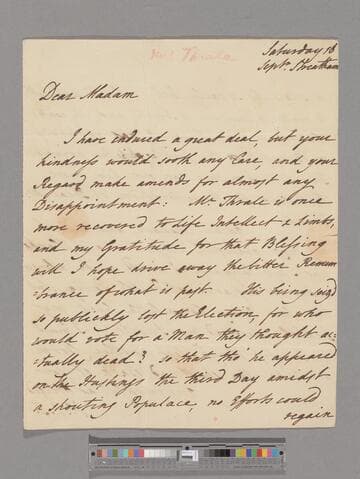 Mrs Thrale
Saturday 16
Septr. Streatham
Dear Madam
I have endured a great deal, but your
kindness would sooth any Care, and your
Regard make amends for almost any
Disappointment: Mr Thrale is once
more recovered to Life Intellect & Limbs,
and my Gratitude for that Blessing
will I hope drive away the bitter Remem
:brance of what is past. His being seiz'd
so publickly lost the Election, for who
would vote for a Man they thought ac
:tually dead? so that tho' he appeared
on the Hustings the third Day amidst
a shouting Populace, no Efforts could
regain